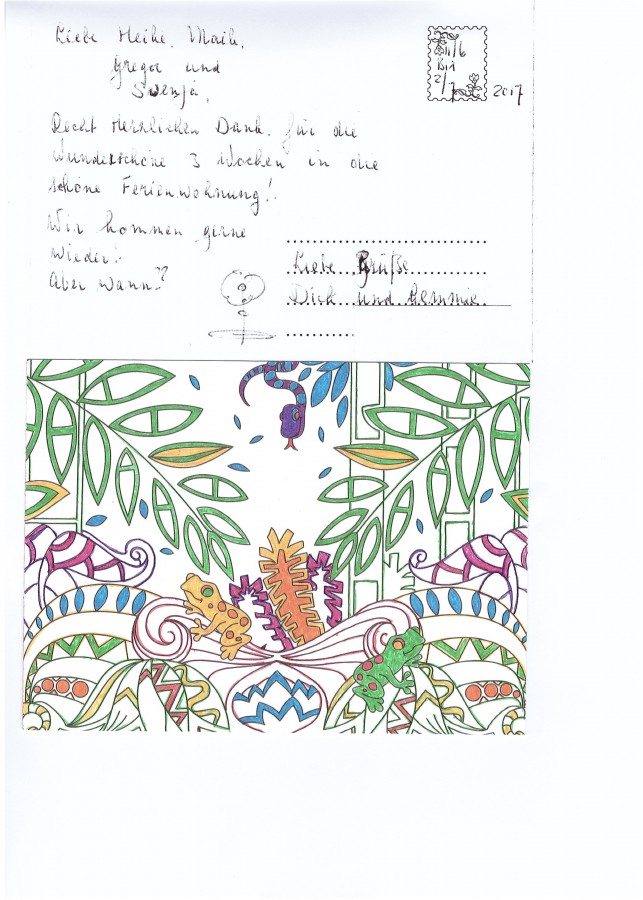 Liebe Heike, Maik,
Gregor und
Svenja,
Recht Herzlichen Dank für die
wunderschöne 3 Wochen in die
schöne Ferienwohnung!
Wir kommen gerne
wieder!
Aber wann??
11/6
Bis
2/7 2017
Liebe Grüße
Dick und Gemmie